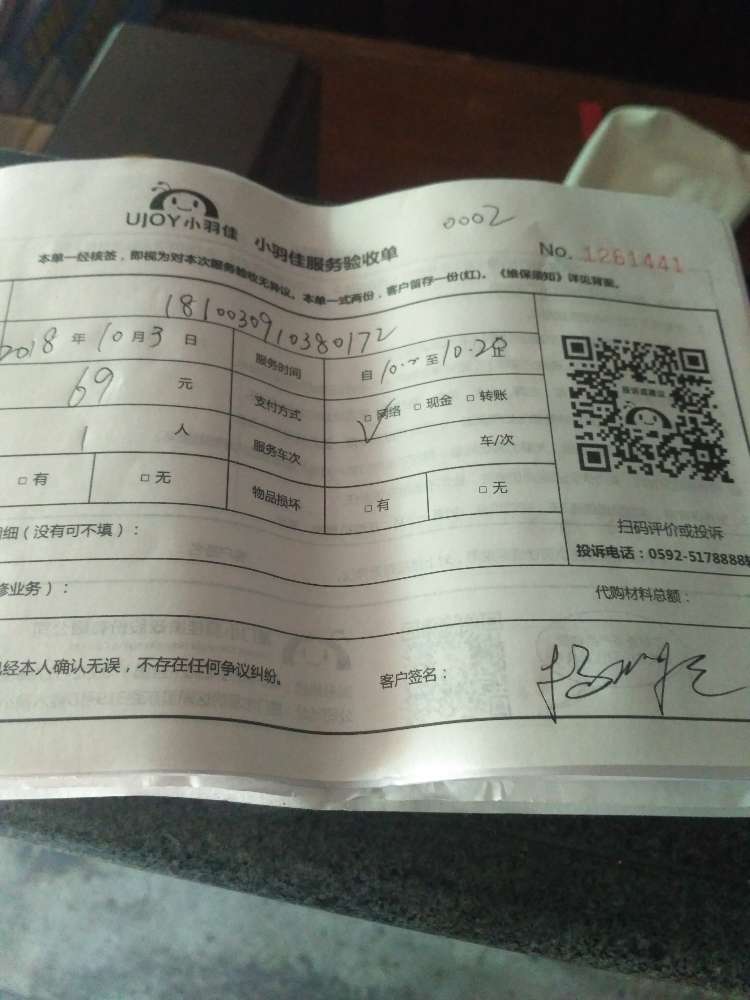 UJOY小羽佳 小羽佳服务验收单
0002
No. 1261441
本单一经核签，即视为对本次服务验收无异议。本单一式两份，客户留存一份(红)。《维保须知》详见背面。
1810030910380172
2018年10月3日 服务时间 自10. 至10.20止
69元 支付方式 □网络 □现金 □转账
1人 服务车次 车/次
□有 □无 物品损坏 □有 □无
投诉或建议
扫码评价或投诉
投诉电话：0592-5178888转
细（没有可不填）：
修业务）： 代购材料总额：
已经本人确认无误，不存在任何争议纠纷。 客户签名：